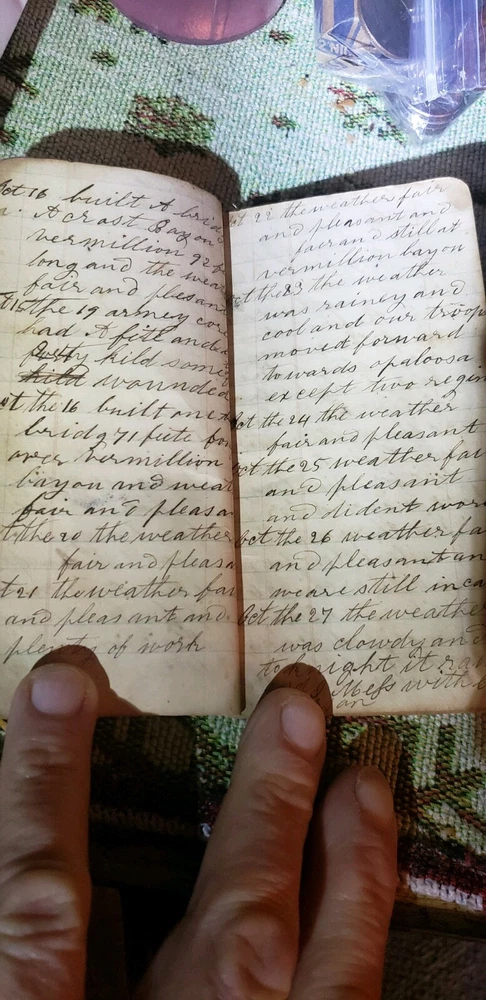 oct 16 built A brid
Acrost Bayou
vermillion 92
long and the wea
fair and pleasan
15 the 19 armey cor
had A fite and
kild some
wounded
the 16 built one
bridg 71 feete
over vermillion
bayou and weat
fair and pleasa
the 20 the weather
fair and pleasa
21 the weather fai
and pleasant and
plenty of work
ct 22 the weather fair
and pleasant and
fair and still at
vermillion bayou
the 23 the weather
was rainey and
cool and our troop
moved forward
towards opaloosa
except two regim
oct the 24 the weather
fair and pleasant
oct the 25 weather fai
and pleasant
and dident wor
oct the 26 weather fa
and pleasant an
weare still in ca
Oct the 27 the weathe
was clowdy and
to night it ra
Mess with
an